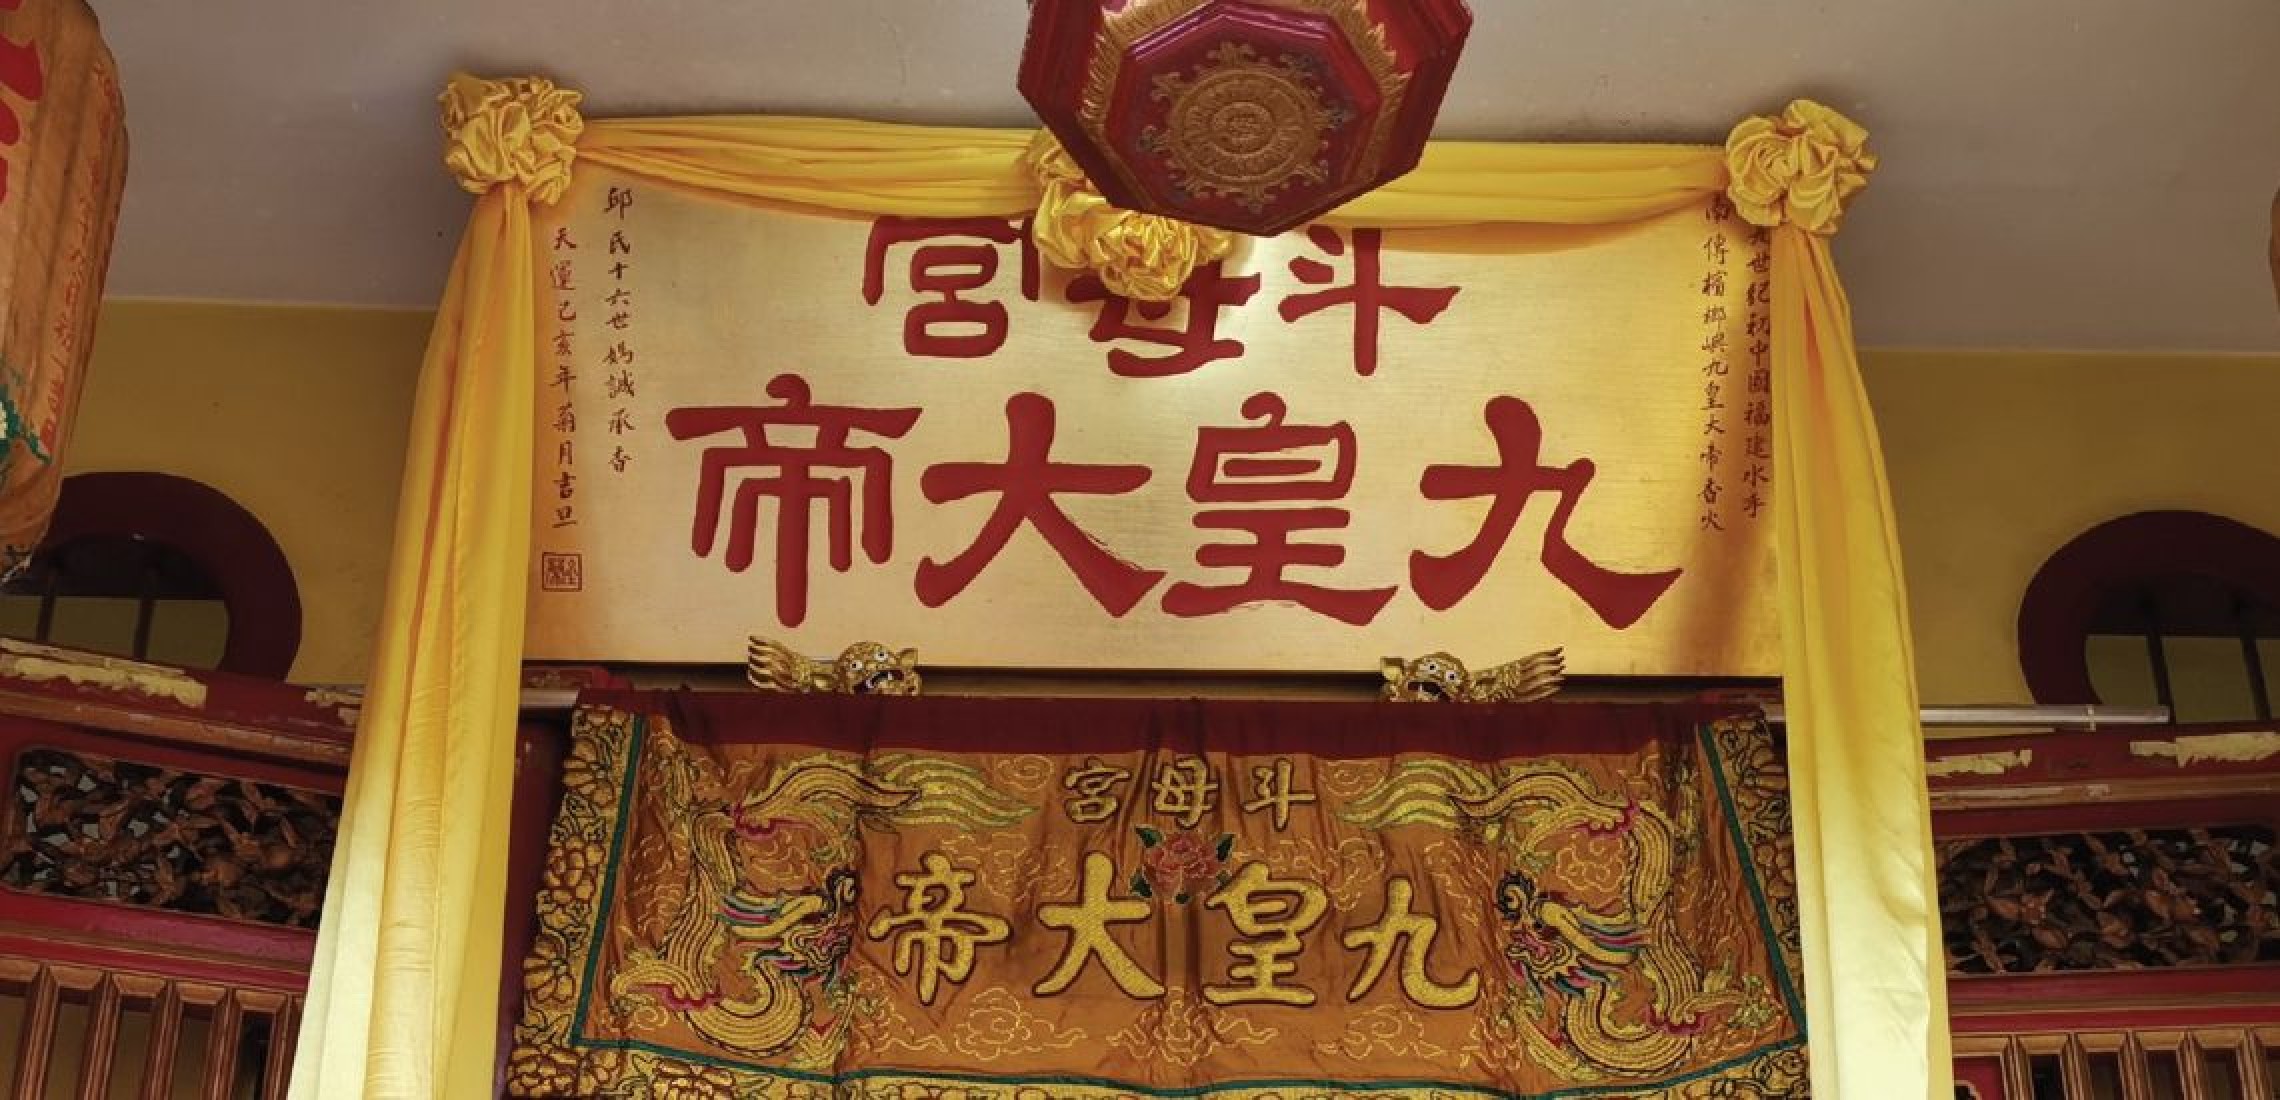 斗母宮
九皇大帝
九世紀初中國福建水手
南傳檳榔嶼九皇大帝香火
邱民十六世媽誠承香
天運己亥年菊月吉旦
斗母宮
九皇大帝